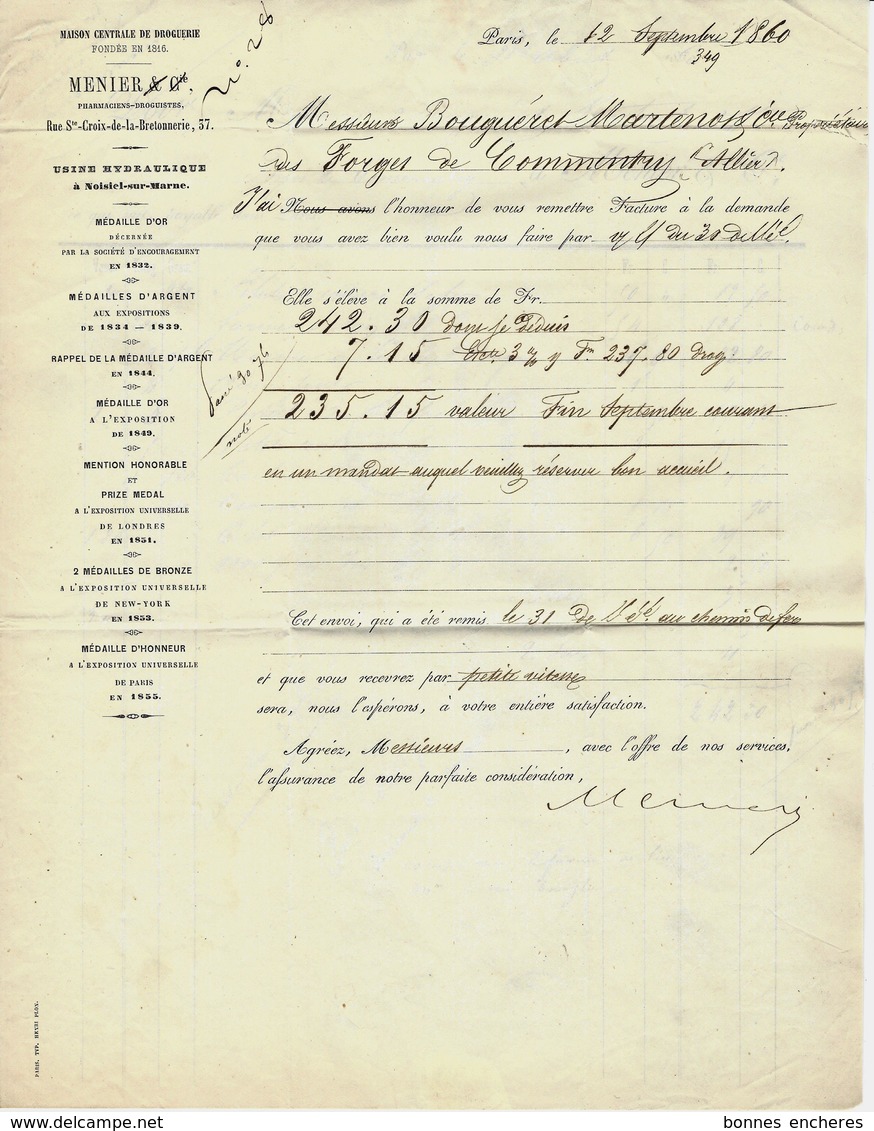 MAISON CENTRALE DE DROGUERIE
FONDÉE EN 1816.
MENIER & Cie,
PHARMACIENS-DROGUISTES,
Rue Ste-Croix-de-la-Bretonnerie, 37.
USINE HYDRAULIQUE
à Noisiel-sur-Marne.
MÉDAILLE D'OR
DÉCERNÉE
PAR LA SOCIÉTÉ D'ENCOURAGEMENT
EN 1832.
MÉDAILLES D'ARGENT
AUX EXPOSITIONS
DE 1834 — 1839.
RAPPEL DE LA MÉDAILLE D'ARGENT
EN 1844.
MÉDAILLE D'OR
A L'EXPOSITION
DE 1849.
MENTION HONORABLE
ET
PRIZE MEDAL
A L'EXPOSITION UNIVERSELLE
DE LONDRES
EN 1851.
2 MÉDAILLES DE BRONZE
A L'EXPOSITION UNIVERSELLE
DE NEW-YORK
EN 1853.
MÉDAILLE D'HONNEUR
A L'EXPOSITION UNIVERSELLE
DE PARIS
EN 1855.
PARIS. TYP. HENRI PLON.
No. 28
Paris, le 12 Septembre 1860
349
Messieurs Bouguéret Martenot & Cie Propriétaires
des Forges de Commentry (Allier).
J'ai Nous avons l'honneur de vous remettre Facture à la demande
que vous avez bien voulu nous faire par du 30 de
Elle s'élève à la somme de Fr.
242.30 dont je déduis
7.15 Escte 3 % s/ Frs 237.80 drog.
235.15 valeur Fin Septembre courant
noté
en un mandat auquel veuillez réserver bon accueil.
Cet envoi, qui a été remis le 31 de au chemin de fer
et que vous recevrez par petite vitesse
sera, nous l'espérons, à votre entière satisfaction.
Agréez, Messieurs, avec l'offre de nos services,
l'assurance de notre parfaite considération,
Menier
bonnes encheres